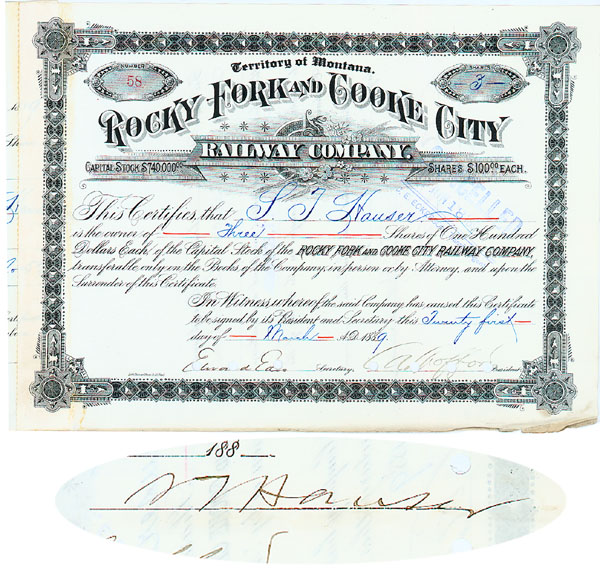 Territory of Montana.
NUMBER
58
SHARES
3
ROCKY FORK AND COOKE CITY
RAILWAY COMPANY.
CAPITAL STOCK $740,000.00
SHARES $100.00 EACH.
This Certifies that S. T. Hauser
is the owner of Three Shares of One Hundred
Dollars Each, of the Capital Stock of the ROCKY FORK AND COOKE CITY RAILWAY COMPANY,
transferable only on the Books of the Company, in person or by Attorney, and upon the
Surrender of this Certificate.
In Witness whereof the said Company has caused this Certificate
to be signed by its President and Secretary this Twenty first
day of March A.D. 1889.
Secretary.
President.
188
S T Hauser